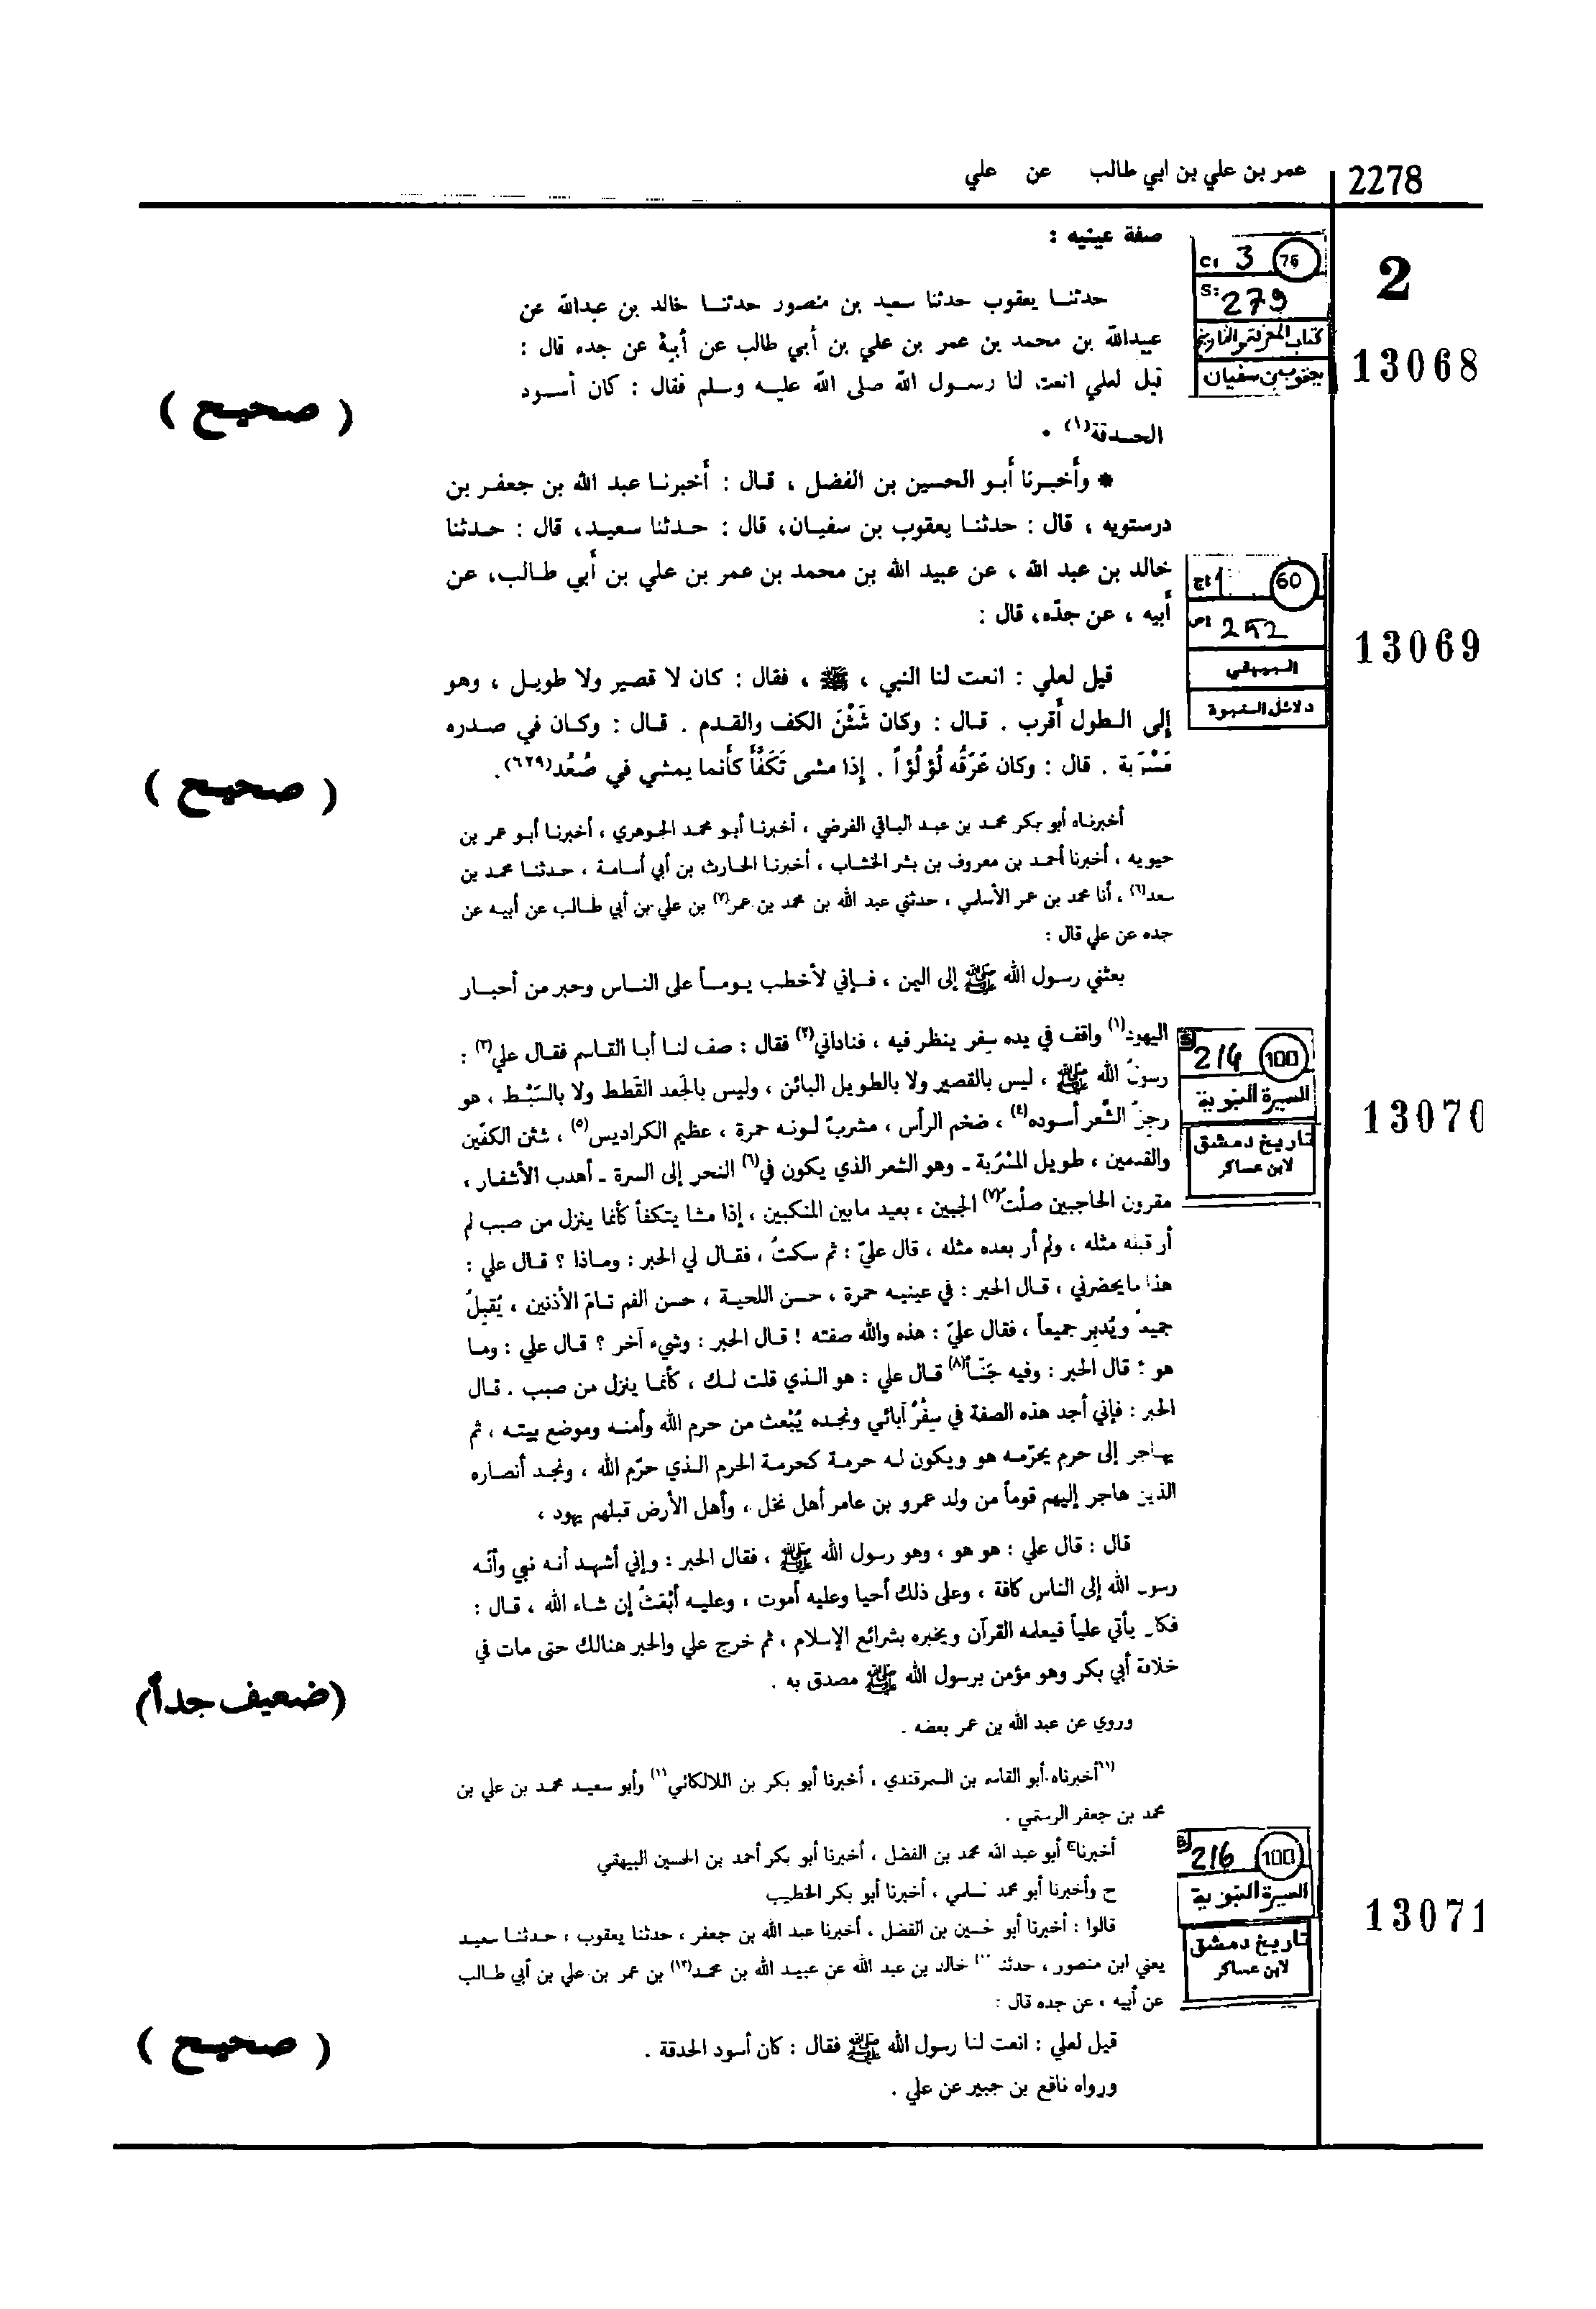 2278
عمر بن علي بن ابي طالب عن علي
2
13068
C: 3 76
S: 279
كتاب المعرفة والتاريخ
يعقوب بن سفيان
صفة عينيه :
حدثنـا يعقوب حدثنا سعيد بن منصور حدثنـا خالد بن عبدالله عن
عبيدالله بن محمد بن عمر بن علي بن أبي طالب عن أبيه عن جده قال :
قيل لعلي انعت لنا رسـول الله صلى الله عليـه وسـلم فقال : كان أسـود
الحـدقة(١) .
( صحيح )
13069
ج: 1 60
ص: 252
البيهقي
دلائل النبوة
* وأخبـرنا أبـو الحسين بن الفضل ، قـال : أخبرنـا عبد الله بن جعفـر بن
درستويه ، قال : حدثنـا يعقوب بن سفيـان، قال : حـدثنا سعيـد، قال : حـدثنا
خالد بن عبد الله ، عن عبيد الله بن محمد بن عمر بن علي بن أبي طـالب، عن
أبيه ، عن جدّه، قال :
قيل لعلي : انعت لنا النبي ، ﷺ ، فقال : كان لا قصير ولا طويـل ، وهو
إلى الـطول أقرب . قـال : وكان شَثْنَ الكف والقدم . قـال : وكـان في صـدره
مَسْرَبة . قال : وكان عَرَقُه لُؤلُؤاً . إذا مشى تَكَفَّأَ كأنما يمشي في صُعُد(٦٢٩).
( صحيح )
13070
214 100
السيرة النبوية
تاريخ دمشق
لابن عساكر
أخبرنـاه أبو بكر محمد بن عبد البـاقي الفرضي ، أخبرنـا أبـو محمد الجـوهري ، أخبرنـا أبـو عمر بن
حيويه ، أخبرنا أحمد بن معروف بن بشر الخشاب ، أخبرنـا الحـارث بن أبي أسـامـة ، حـدثنـا محمـد بن
سعد(٦) ، أنا محمد بن عمر الأسلمي ، حدثني عبد الله بن محمد بن عمر(٧) بن علي بن أبي طـالب عن أبيـه عن
جده عن علي قال :
بعثني رسـول الله ﷺ إلى اليمن ، فـإني لأخطب يـومـاً على النـاس وحبر من أحبـار
اليهود(١) واقف في يده سِفر ينظر فيه ، فناداني(٢) فقال : صف لنـا أبـا القـاسم فقـال علي(٣) :
رسولُ الله ﷺ ، ليس بالقصير ولا بالطويل البائن ، وليس بالجَعد القَطط ولا بالسَبْـط ، هو
رجِلُ الشَّعر أسوده(٤) ، ضخم الرأس ، مشربٌ لـونـه حمرة ، عظيم الكراديس(٥) ، شثن الكفّين
والقدمين ، طويل المَسْرَبة ـ وهو الشعر الذي يكون في(٦) النحر إلى السرة ـ أهدب الأشفـار ،
مقرون الحاجبين صلْتُ(٧) الجبين ، بعيد مابين المنكبين ، إذا مشـا يتكفأ كأنما ينزل من صبب لم
أر قبله مثله ، ولم أر بعده مثله ، قال عليّ : ثم سكتُ ، فقـال لي الحبر : ومـاذا ؟ قـال علي :
هذا مايحضرني ، قـال الحبر : في عينيـه حمرة ، حسـن اللحيـة ، حسن الفم تـامّ الأذنين ، يُقبِلُ
جميعاً ويُدبِر جميعاً ، فقال عليّ : هذه والله صفته ! قـال الحبر : وشيء آخر ؟ قـال علي : ومـا
هو ؟ قال الحبر : وفيه جَنَـأ(٨) قـال علي : هـو الـذي قلت لـك ، كأنمـا ينزل من صبب . قـال
الحبر : فإني أجد هذه الصفة في سِفْر آبائي ونجـده يُبْعث من حرم الله وأمنـه وموضع بيتـه ، ثم
يهـاجر إلى حرم يحرّمـه هو ويكون لـه حرمـة كحرمـة الحرم الـذي حرّم الله ، ونجـد أنصـاره
الذين هاجر إليهم قوماً من ولد عمرو بن عامر أهل نخل ، وأهل الأرض قبلهم يهود ،
قال : قال علي : هو هو ، وهو رسول الله ﷺ ، فقال الحبر : وإني أشهـد أنـه نبي وأنّـه
رسول الله إلى الناس كافة ، وعلى ذلك أحيا وعليه أموت ، وعليـه أُبْعَثُ إن شـاء الله ، قـال :
فكان يأتي علياً فيعلمه القرآن ويخبره بشرائع الإسلام ، ثم خرج علي والحبر هنالك حتى مات في
خلافة أبي بكر وهو مؤمن برسول الله ﷺ مصدق به .
(ضعيف جداً)
وروي عن عبد الله بن عمر بعضه .
13071
216 100
السيرة النبوية
تاريخ دمشق
لابن عساكر
(١١)أخبرناه أبو القاسم بن السمرقندي ، أخبرنا أبو بكر بن اللالكائي(١١) وأبو سعيـد محمد بن علي بن
محمد بن جعفر الرستمي .
أخبرناح أبو عبد الله محمد بن الفضل ، أخبرنا أبو بكر أحمد بن الحسين البيهقي
ح وأخبرنا أبو محمد السلمي ، أخبرنا أبو بكر الخطيب
قالوا : أخبرنا أبو الحسين بن الفضل ، أخبرنا عبد الله بن جعفر ، حدثنا يعقوب ، حـدثنـا سعيـد
يعني ابن منصور ، حدثنا خالد بن عبد الله عن عبيد الله بن محمـد(١٣) بن عمر بن علي بن أبي طـالب
عن أبيه ، عن جده قال :
قيل لعلي : انعت لنـا رسول الله ﷺ فقال : كان أسود الحدقة .
( صحيح )
ورواه نافع بن جبير عن علي .